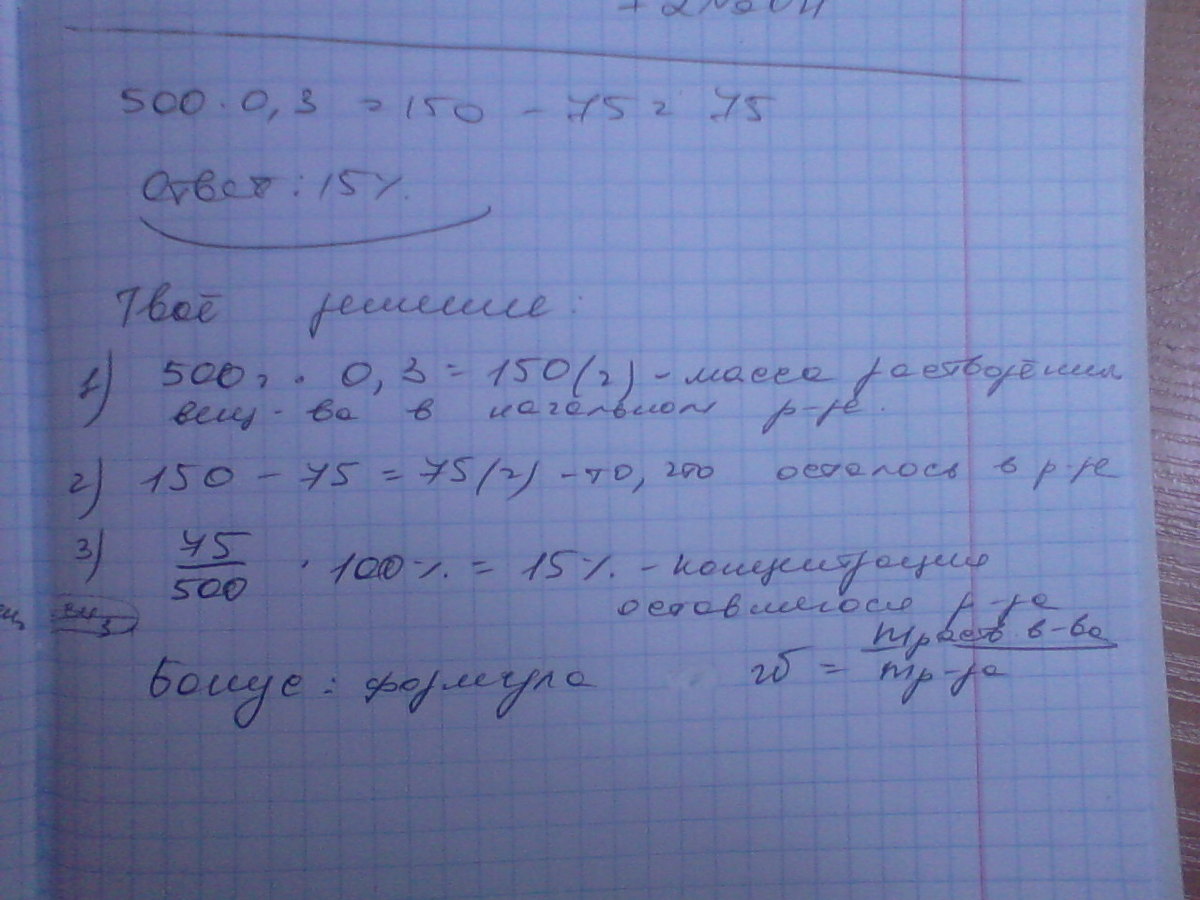 + 2NaOH
500 · 0,3 = 150 - 75 = 75
Ответ: 15%.
Твоё решение:
1) 500г · 0,3 = 150(г) - масса растворённого
вещ-ва в начальном р-ре.
2) 150 - 75 = 75(г) - то, что осталось в р-ре
3) 75/500 · 100% = 15% - концентрация
оставшегося р-ра
Бонус: формула ω = mраств. в-ва / mр-ра